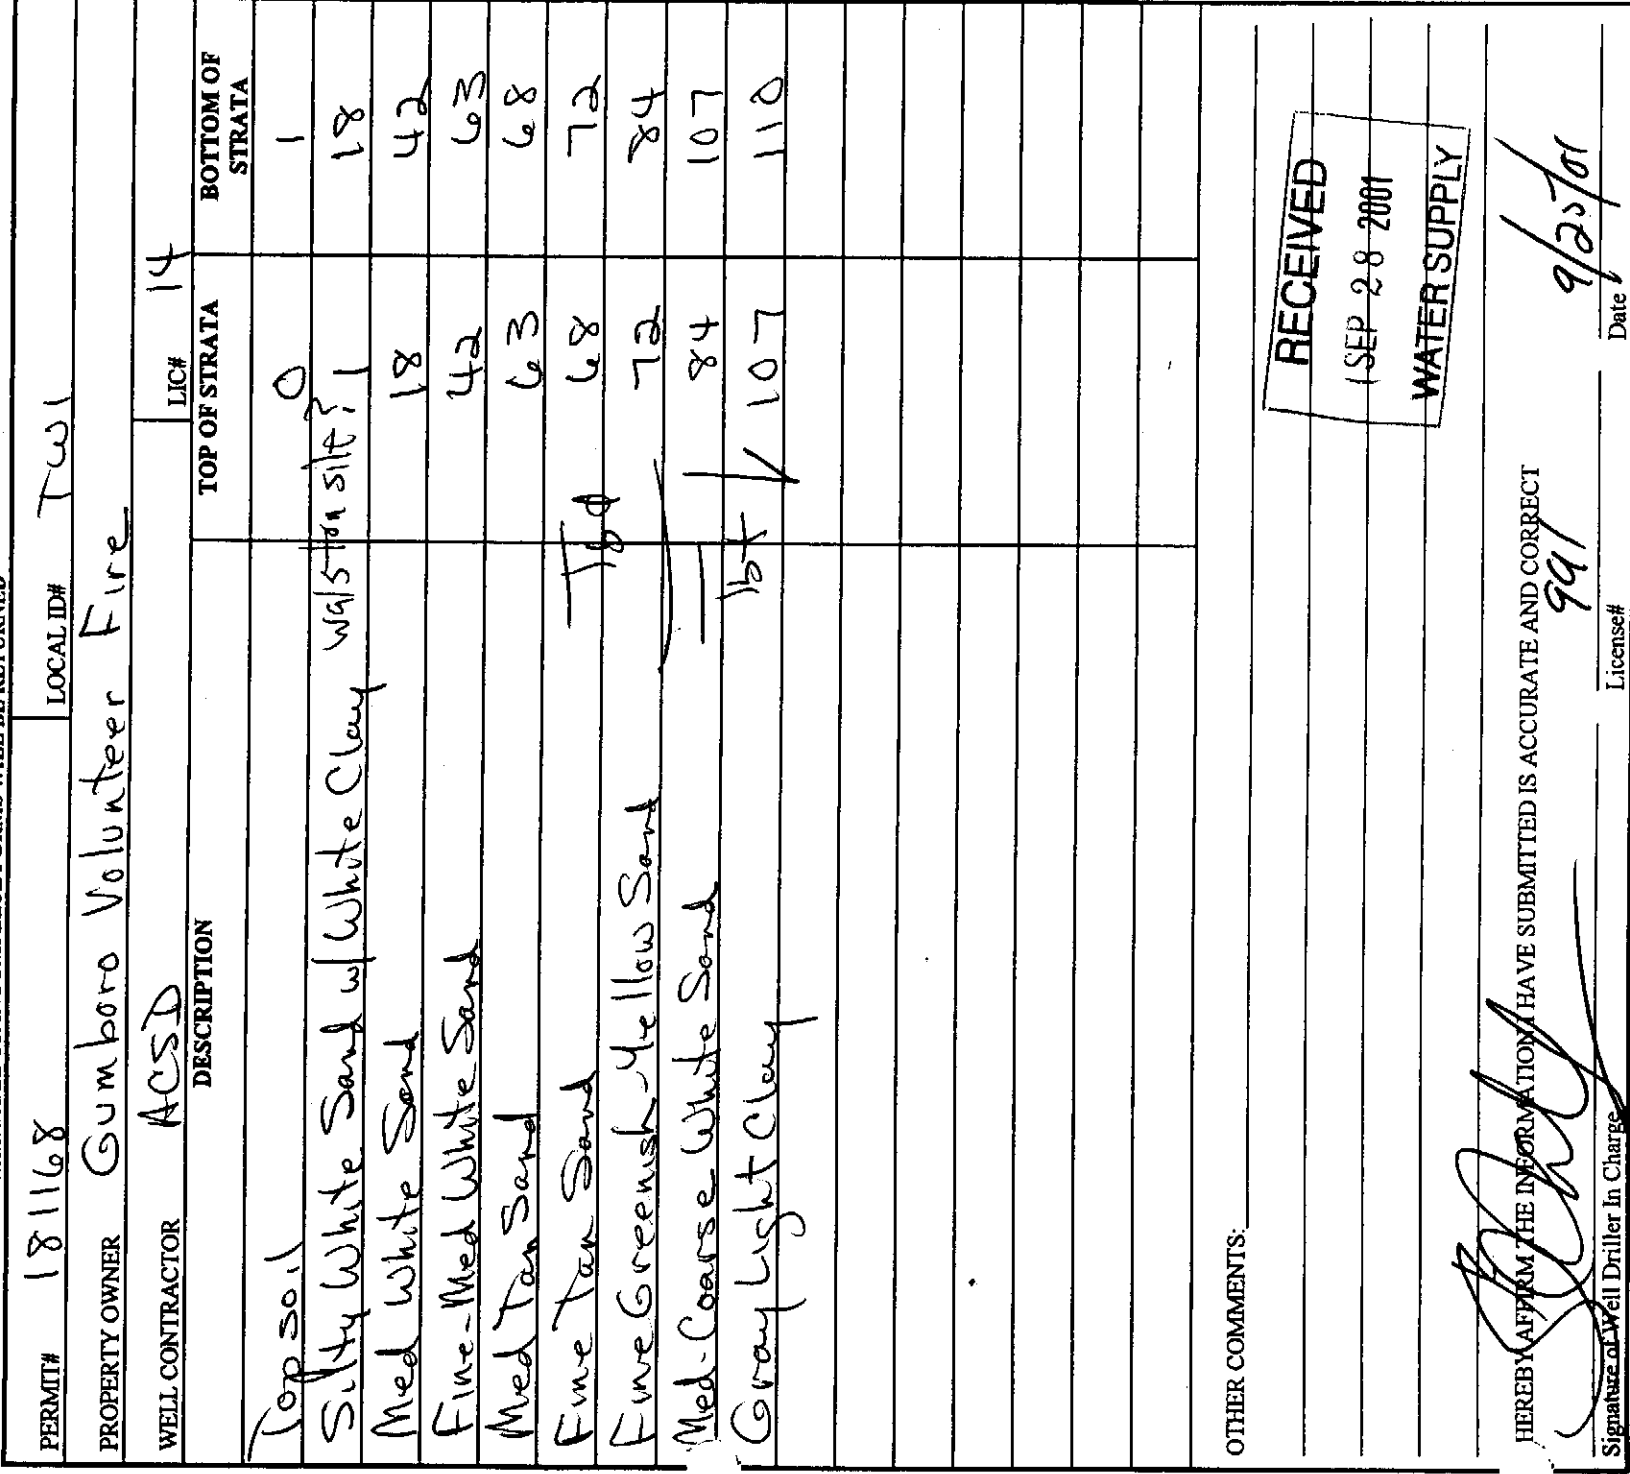 PERMIT# 181168 LOCAL ID# TW1
PROPERTY OWNER Gumboro Volunteer Fire
WELL CONTRACTOR ACSD LIC# 14
DESCRIPTION TOP OF STRATA BOTTOM OF STRATA
Topsoil 0 1
Silty White Sand w/ White Clay walston silt? 1 18
Med White Sand 18 42
Fine-Med White Sand 42 63
Med Tan Sand 63 68
Fine Tan Sand 68 72
Fine Greenish-Yellow Sand 72 84
Med-Coarse White Sand 84 107
Gray Light Clay 107 110
OTHER COMMENTS:
RECEIVED
SEP 28 2001
WATER SUPPLY
HEREBY AFFIRM THE INFORMATION I HAVE SUBMITTED IS ACCURATE AND CORRECT
991 9/25/01
Signature of Well Driller In Charge License# Date